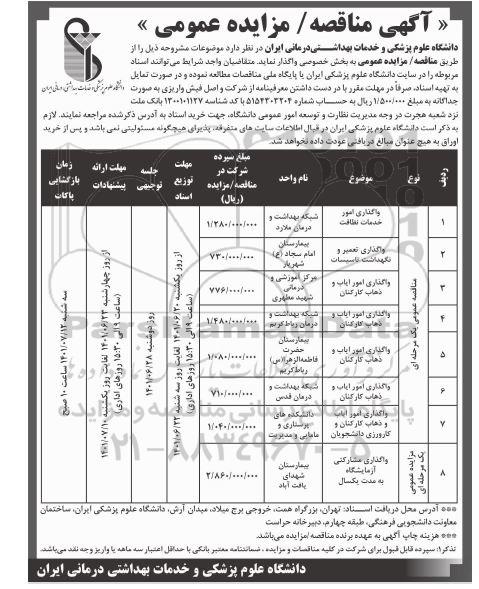 « آگهی مناقصه/ مزایده عمومی »
دانشگاه علوم پزشکی و خدمات بهداشتی درمانی ایران
دانشگاه علوم پزشکی و خدمات بهداشتی‌درمانی ایران در نظر دارد موضوعات مشروحه ذیل را از
طریق مناقصه/ مزایده عمومی به بخش خصوصی واگذار نماید. متقاضیان واجد شرایط می‌توانند اسناد
مربوطه را در سایت دانشگاه علوم پزشکی ایران یا پایگاه ملی مناقصات مطالعه نموده و در صورت تمایل
به تهیه اسناد، صرفاً در مهلت مقرر با در دست داشتن معرفینامه از شرکت و اصل فیش واریزی به صورت
جداگانه به مبلغ ۱/۵۰۰/۰۰۰ ریال به حساب شماره ۵۱۵۴۳۰۳۲۰۴ با کد شناسه ۱۳۰۰۱۰۱۱۲۷ بانک ملت
نزد شعبه هجرت در وجه مدیریت نظارت و توسعه امور عمومی دانشگاه، جهت خرید اسناد به آدرس ذکرشده مراجعه نمایند. لازم
به ذکر است دانشگاه علوم پزشکی ایران در قبال اطلاعات سایت های متفرقه، پذیرای هیچگونه مسئولیتی نمی باشد و پس از خرید
اوراق به هیچ عنوان مبالغ دریافتی عودت داده نخواهد شد.
ردیف نوع موضوع نام واحد مبلغ سپرده شرکت در مناقصه/مزایده (ریال) مهلت توزیع اسناد جلسه توجیهی مهلت ارائه پیشنهادات زمان بازگشایی پاکات
۱ واگذاری امور خدمات نظافت شبکه بهداشت و درمان ملارد ۱/۲۸۰/۰۰۰/۰۰۰
۲ واگذاری تعمیر و نگهداشت تاسیسات بیمارستان امام سجاد (ع) شهریار ۷۳۰/۰۰۰/۰۰۰
۳ واگذاری امور ایاب و ذهاب کارکنان مرکز آموزشی و درمانی شهید مطهری ۷۷۶/۰۰۰/۰۰۰
۴ واگذاری امور ایاب و ذهاب کارکنان شبکه بهداشت و درمان رباط کریم ۱/۴۸۰/۰۰۰/۰۰۰
۵ واگذاری امور ایاب و ذهاب کارکنان بیمارستان حضرت فاطمه‌الزهرا(س) رباط کریم ۱/۰۸۰/۰۰۰/۰۰۰
۶ واگذاری امور ایاب و ذهاب کارکنان شبکه بهداشت و درمان قدس ۷۱۰/۰۰۰/۰۰۰
۷ واگذاری امور ایاب و ذهاب کارکنان و کارورزی دانشجویان دانشکده های پرستاری و مامایی و مدیریت ۱/۰۴۰/۰۰۰/۰۰۰
۸ واگذاری مشارکتی آزمایشگاه به مدت یکسال بیمارستان شهدای یافت آباد ۲/۸۶۰/۰۰۰/۰۰۰
مناقصه عمومی یک مرحله ای
مزایده عمومی یک مرحله ای
از روز یکشنبه ۱۴۰۱/۰۶/۲۰ لغایت روز سه شنبه ۱۴۰۱/۰۶/۲۲ (ساعت ۹ الی ۱۵:۳۰ روزهای اداری)
روز دوشنبه ۱۴۰۱/۰۶/۲۸
از روز چهارشنبه ۱۴۰۱/۰۶/۲۳ لغایت روز یکشنبه ۱۴۰۱/۰۷/۱۰ (ساعت ۹ الی ۱۵:۳۰ روزهای اداری)
سه شنبه ۱۴۰۱/۰۷/۱۲ ساعت ۱۰ صبح
ParsNamadData
۰۲۱-۸۸۳۴۹۶۷۰-۵
*** آدرس محل دریافت اسناد: تهران، بزرگراه همت، خروجی برج میلاد، میدان آرش، دانشگاه علوم پزشکی ایران، ساختمان
معاونت دانشجویی فرهنگی، طبقه چهارم، دبیرخانه حراست
*** هزینه چاپ آگهی به عهده برنده مناقصه/مزایده می‌باشد.
تذکر۱: سپرده قابل قبول برای شرکت در کلیه مناقصات و مزایده ، ضمانتنامه معتبر بانکی با حداقل اعتبار سه ماهه یا واریز وجه نقد می‌باشد.
دانشگاه علوم پزشکی و خدمات بهداشتی درمانی ایران